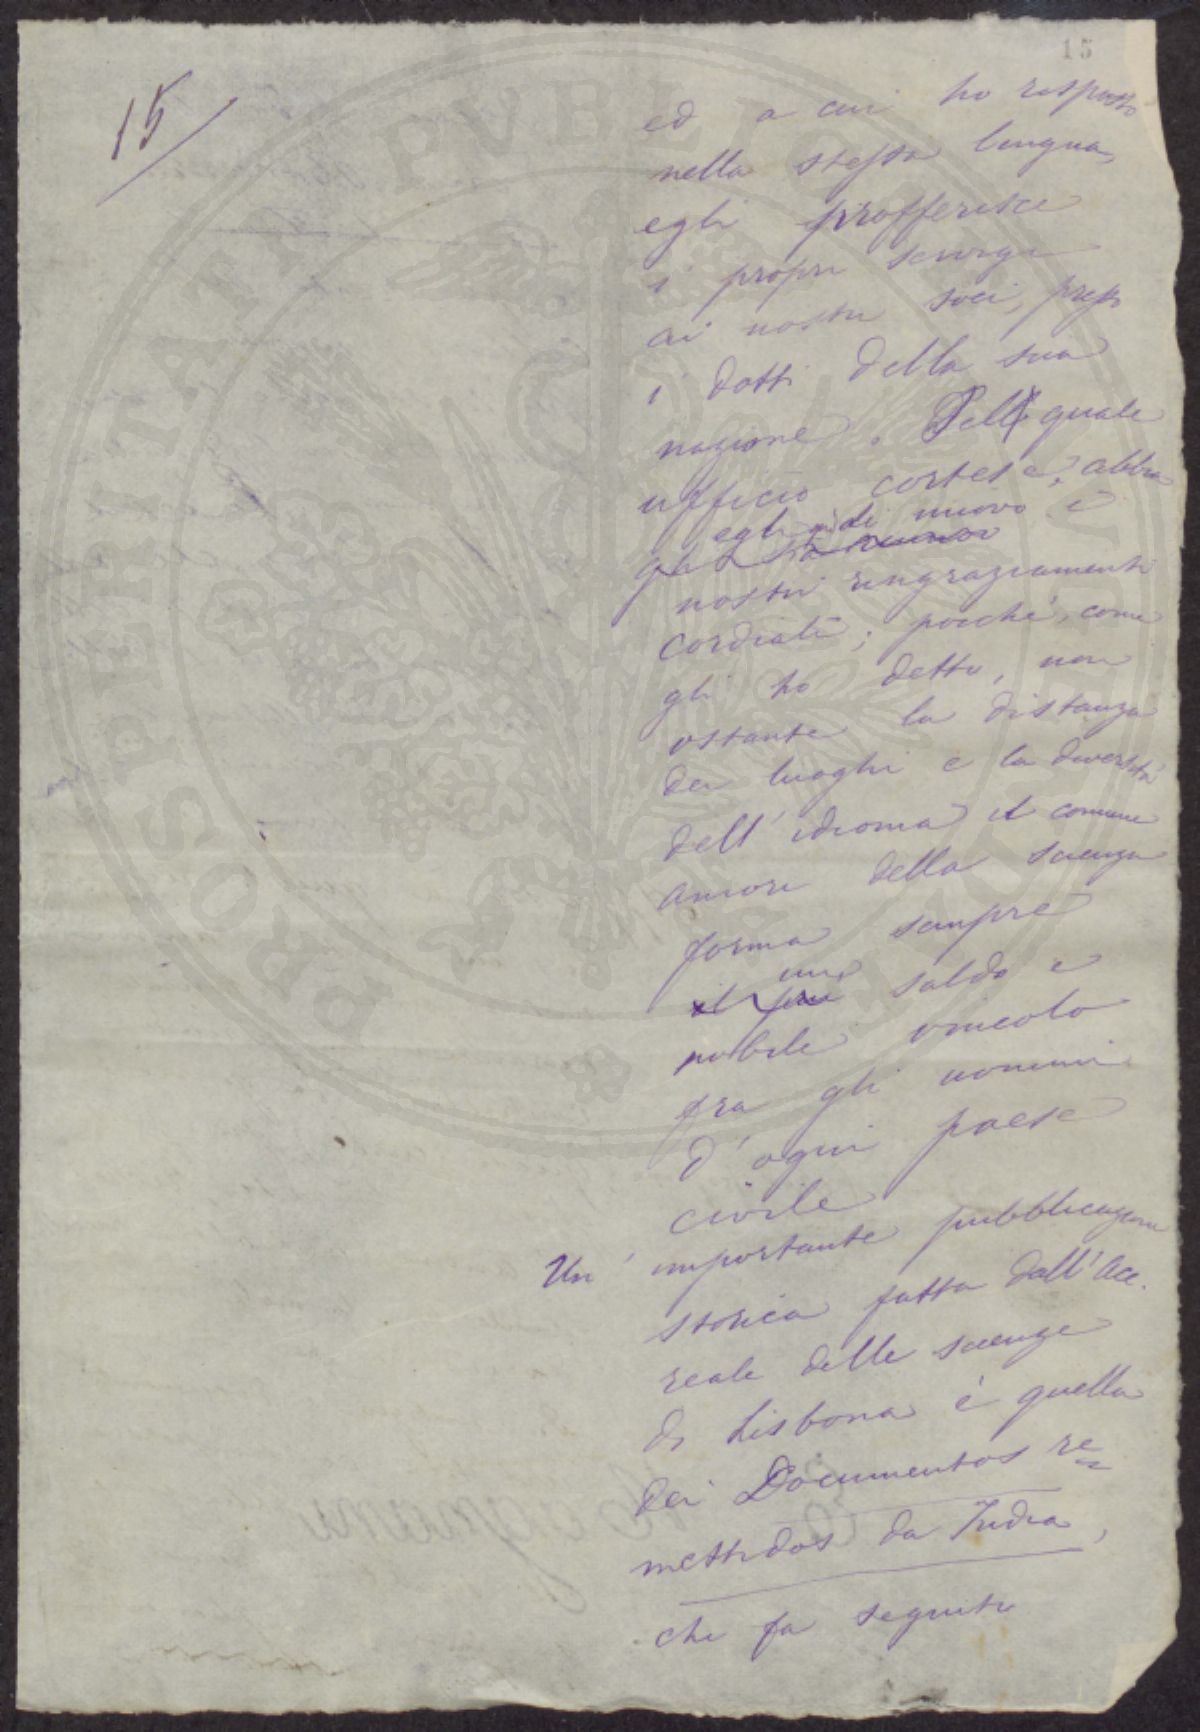 15
15
ed a cui ho risposto
nella stessa lingua,
egli profferisce
i propri servigi
ai nostri soci, presso
i dotti della sua
nazione. Pel quale
ufficio cortese, abbia
egli di nuovo i
nostri ringraziamenti
cordiali; poichè, come
gli ho detto, non
ostante la distanza
dei luoghi e la diversità
dell'idioma il comune
amore della scienza
forma sempre
un
il più saldo e
nobile vincolo
fra gli uomini
d'ogni paese
civile
Un'importante pubblicazione
storica fatta dall'Acc.
reale delle scienze
di Lisbona è quella
dei Documentos re=
mettidos da India,
che fa seguito